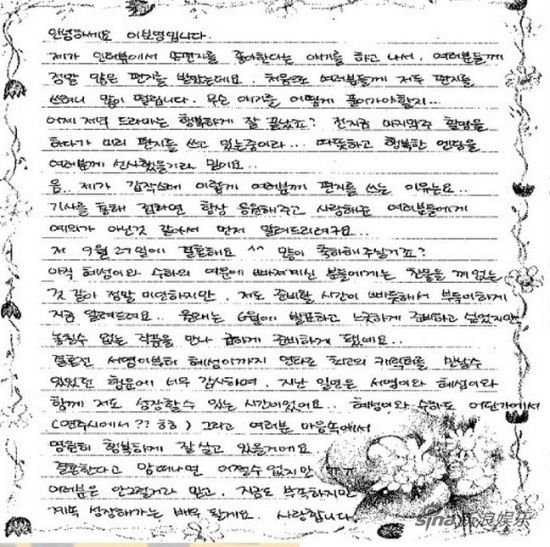 안녕하세요 이보영입니다.
제가 인터뷰에서 손편지를 좋아한다는 얘기를 하고 나서, 여러분들께
정말 많은 편지를 받았는데요. 처음으로 여러분들께 저두 편지를
쓰려니 많이 떨립니다. 무슨 얘기를 어떻게 풀어가야할지...
어제 저녁 드라마는 행복하게 잘 끝났죠? 전 지금 마지막주 촬영을
하다가 미리 편지를 쓰고 있는중이라... 따뜻하고 행복한 엔딩을
여러분께 선사했을거라 믿어요..
음.. 제가 갑작스레 이렇게 여러분께 편지를 쓰는 이유는요..
기사를 통해 접하면 항상 응원해주고 사랑해준 여러분들에게
예의가 아닌것 같아서 먼저 알려드리려구요...
저 9월 27일에 결혼해요 ^^ 많이 축하해주실거죠?
아직 혜성이와 수하의 여운에 빠져계신 분들에게는 찬물을 껴얹는
것 같아 정말 미안하지만, 저도 준비할 시간이 빠듯해서 부득이하게
지금 알려드려요.. 원래는 6월에 발표하고 느긋하게 준비하고 싶었지만
놓칠수 없는 작품을 만나 급하게 준비하게 됐네요..
결혼전 서영이부터 혜성이까지 연타로 최고의 캐릭터를 만날수
있었던 행운에 너무 감사하며, 지난 일년은 서영이와 혜성이와
함께 저도 성장할수 있는 시간이었어요.. 혜성이와 수하도 어딘가에서
(연주시에서?? ㅎㅎ) 그리고 여러분 마음속에서
영원히 행복하게 잘 살고 있을거예요
결혼한다고 맘 떠나면 어쩔수 없지만 ㅠㅠ
여러분은 안그럴거라 믿고, 지금도 부족하지만
계속 성장해가는 배우 될게요. 사랑합니다
sina新浪娱乐